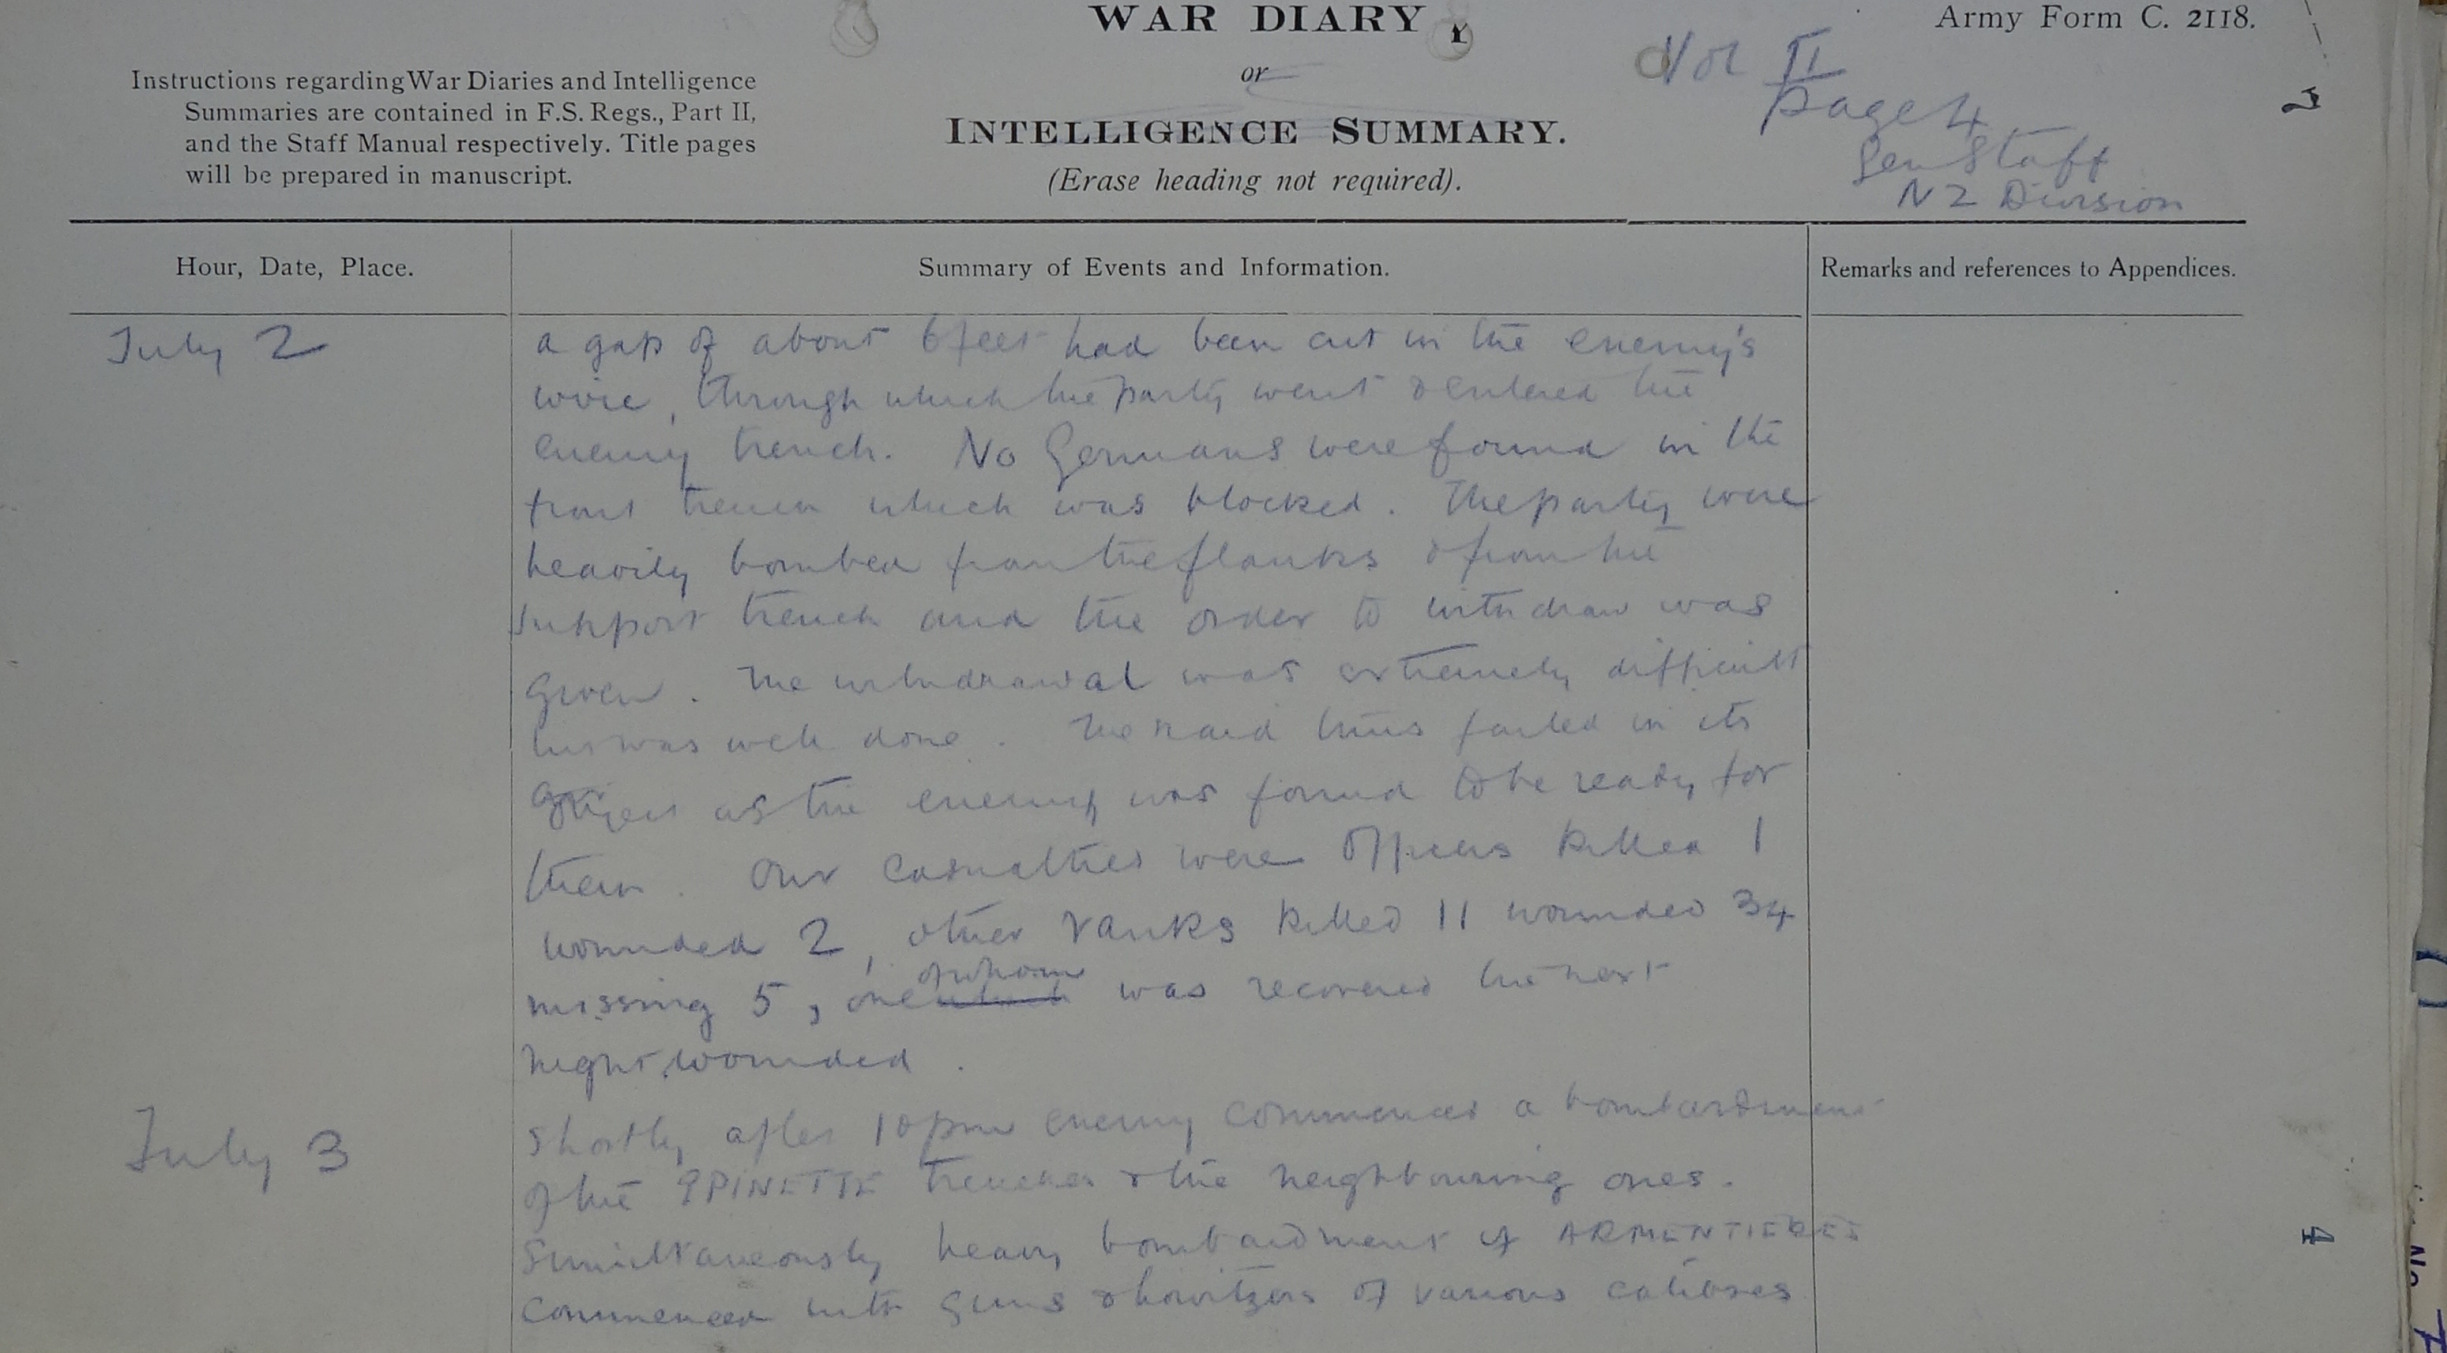 WAR DIARY
or
INTELLIGENCE SUMMARY.
(Erase heading not required).
Army Form C. 2118.
Instructions regarding War Diaries and Intelligence
Summaries are contained in F.S. Regs., Part II,
and the Staff Manual respectively. Title pages
will be prepared in manuscript.
Vol II
page 4
Gen Staff
NZ Division
Hour, Date, Place.
Summary of Events and Information.
Remarks and references to Appendices.
July 2
a gap of about 6 feet had been cut in the enemy's
wire, through which the party went & entered the
enemy trench. No Germans were found in the
front trench which was blocked. The party were
heavily bombed from the flanks & from the
support trench and the order to withdraw was
given. The withdrawal was extremely difficult
but was well done. The raid thus failed in its
object as the enemy was found to be ready for
them. Our casualties were Officers killed 1
wounded 2, other ranks killed 11 wounded 34
missing 5, one of whom was recovered the next
night wounded.
July 3
Shortly after 10 pm enemy commenced a bombardment
of the EPINETTE trenches & the neighbouring ones.
Simultaneously heavy bombardment of ARMENTIERES
commenced with guns & howitzers of various calibres
4